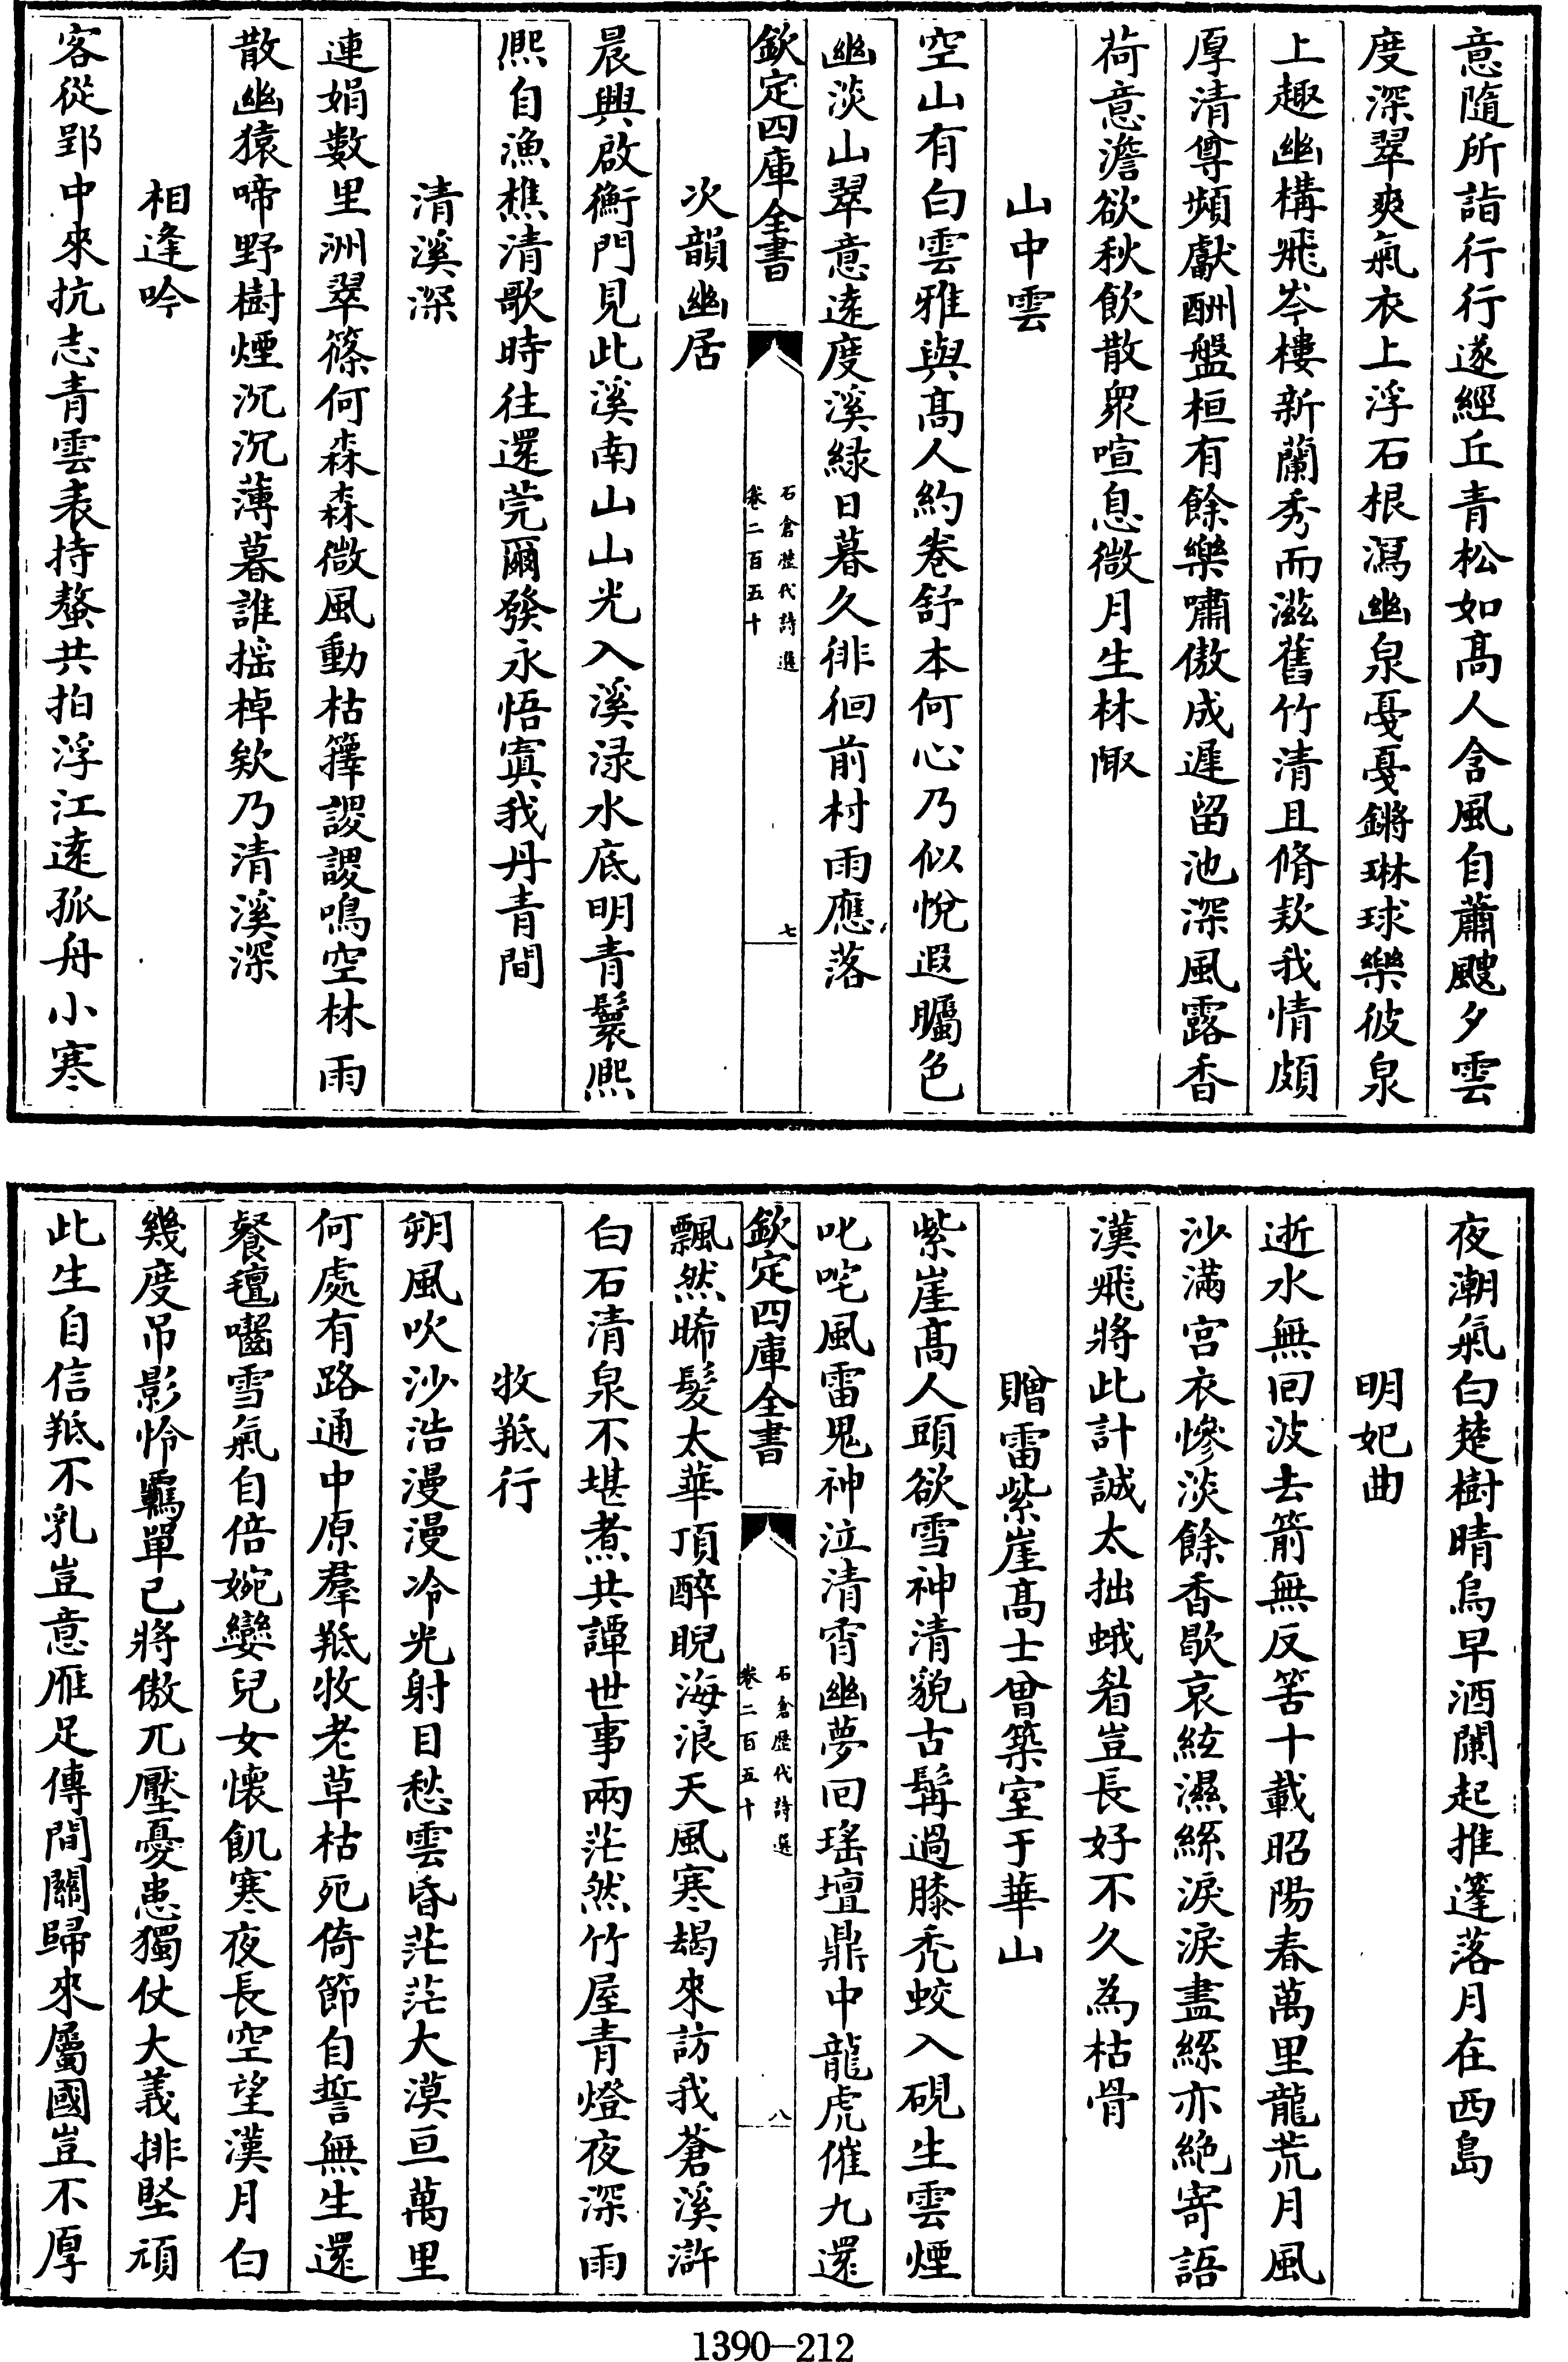 意隨所詣行行遂經丘青松如髙人含風自蕭颼夕雲
度深翠爽氣衣上浮石根瀉幽泉戞戞鏘琳球樂彼泉
上趣幽構飛岑樓新蘭秀而滋舊竹清且脩欵我情頗
厚清尊頻獻酬盤桓有餘樂嘯傲成遲留池深風露香
荷意澹欲秋飲散衆喧息微月生林陬
山中雲
空山有白雲雅與髙人約卷舒本何心乃似悅遐矚色
幽淡山翠意逺度溪緑日暮久徘徊前村雨應落
欽定四庫全書
石倉歴代詩選
卷二百五十
七
次韻幽居
晨興啟衡門見此溪南山山光入溪渌水底明青鬟熙
熙自漁樵清歌時往還莞爾發永悟寘我丹青間
清溪深
連娟數里洲翠篠何森森微風動枯籜謖謖鳴空林雨
散幽猿啼野樹煙沉沉薄暮誰揺棹欸乃清溪深
相逢吟
客從郢中來抗志青雲表持螯共拍浮江逺孤舟小寒
夜潮氣白楚樹晴烏早酒闌起推篷落月在西島
明妃曲
逝水無回波去箭無反筈十載昭陽春萬里龍荒月風
沙滿宫衣慘淡餘香歇哀絃濕絲淚淚盡絲亦絶寄語
漢飛將此計誠太拙蛾眉豈長好不久為枯骨
贈雷紫崖髙士曾築室于華山
紫崖髙人頭欲雪神清貌古髯過膝秃蛟入硯生雲煙
叱咤風雷鬼神泣清宵幽夢回瑤壇鼎中龍虎催九還
欽定四庫全書
石倉歴代詩選
卷二百五十
八
飄然晞髮太華頂醉睨海浪天風寒朅來訪我蒼溪滸
白石清泉不堪煮共譚世事兩茫然竹屋青燈夜深雨
牧羝行
朔風吹沙浩漫漫冷光射目愁雲昏茫茫大漠亘萬里
何處有路通中原羣羝牧老草枯死倚節自誓無生還
餐氊囓雪氣自倍婉孌兒女懷飢寒夜長空望漢月白
幾度吊影怜羈單已將傲兀壓憂患獨仗大義排堅頑
此生自信羝不乳豈意雁足傳間關歸來屬國豈不厚
1390-212